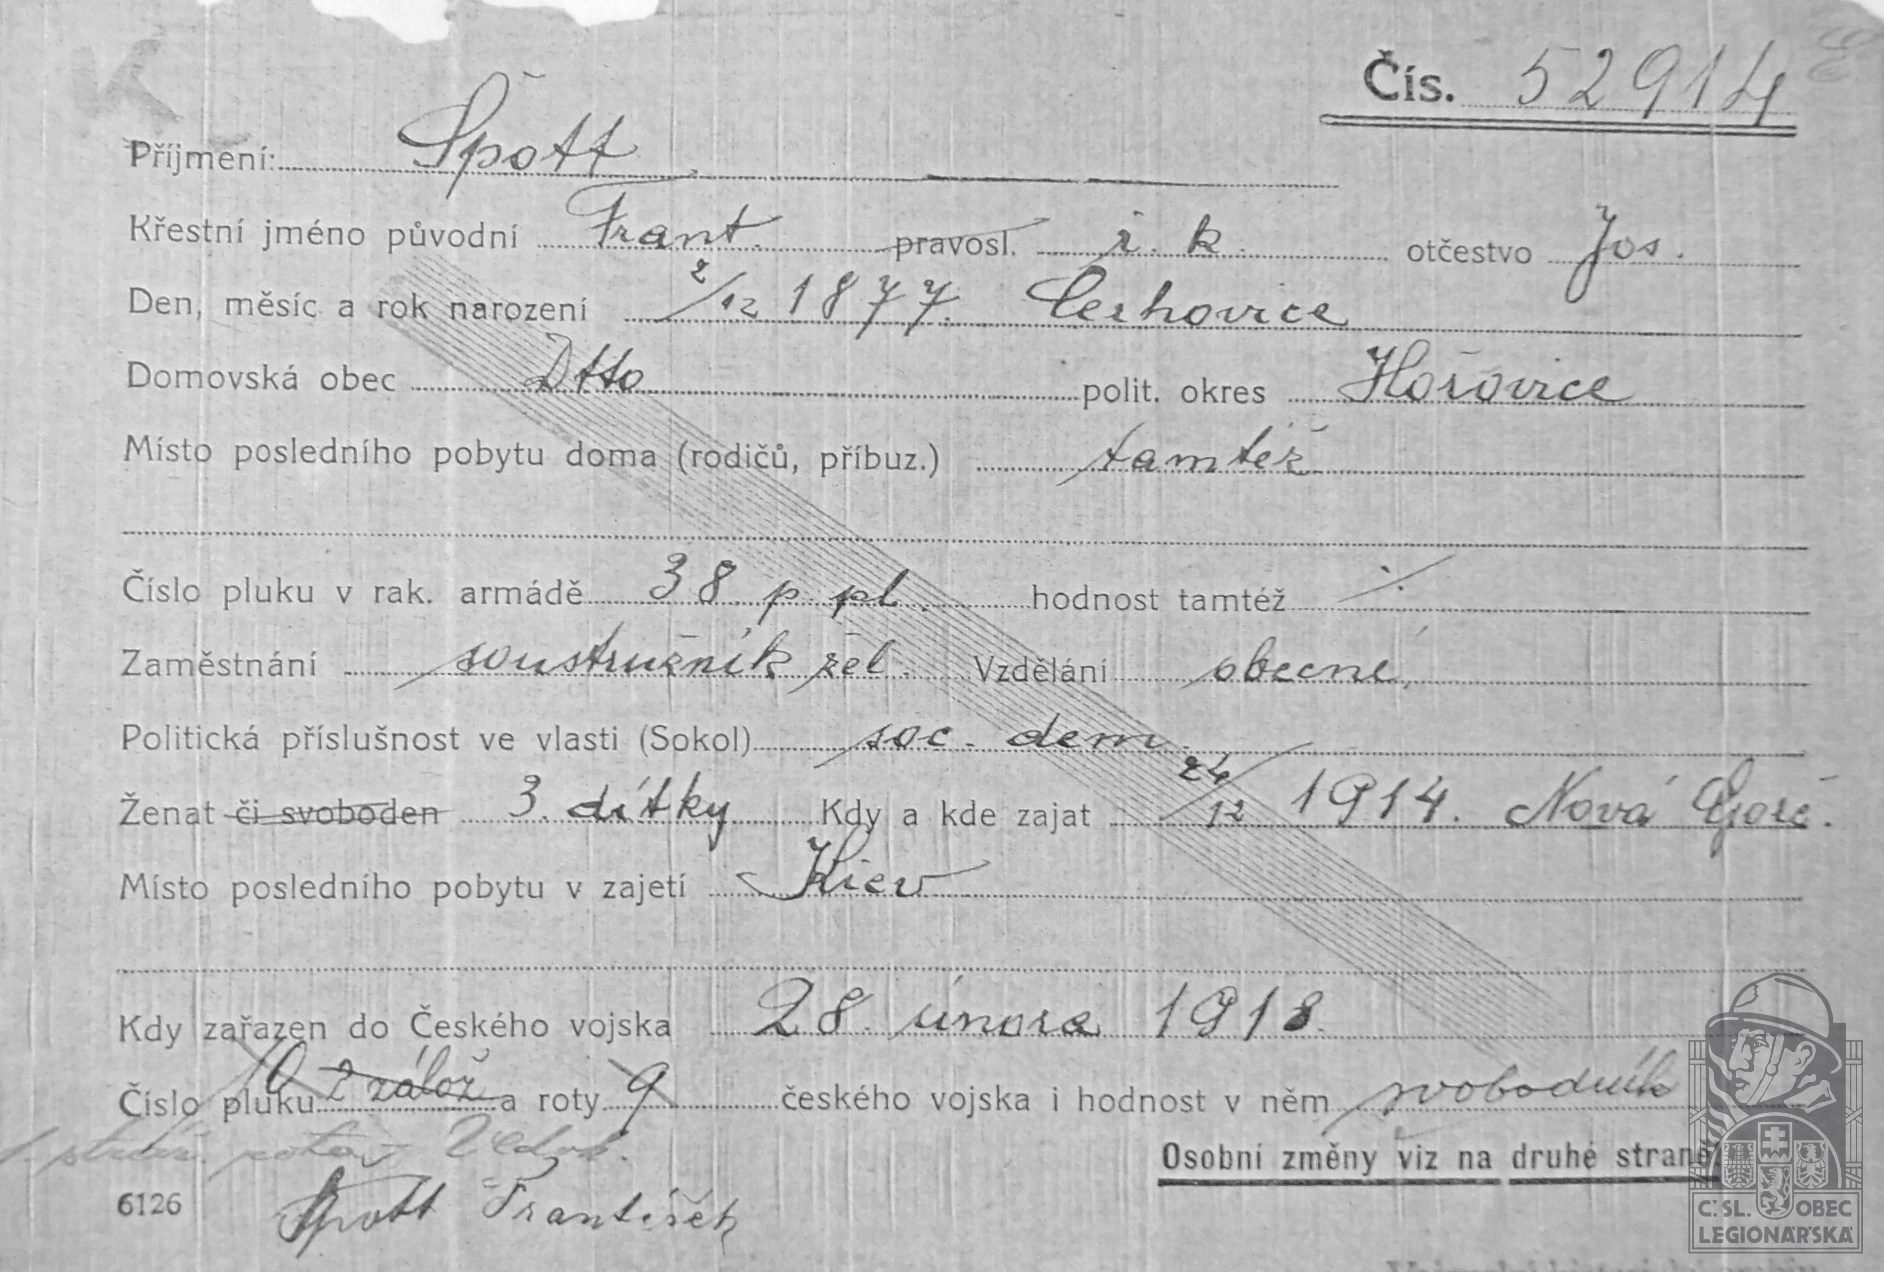 Čís. 52914
Příjmení: Špott
Křestní jméno původní Frant. pravosl. ř. k. otčestvo Jos.
Den, měsíc a rok narození 2/12 1877. Cerhovice
Domovská obec Dtto polit. okres Hořovice
Místo posledního pobytu doma (rodičů, příbuz.) tamtéž
Číslo pluku v rak. armádě 38 p. pl. hodnost tamtéž ./.
Zaměstnání soustružník žel. Vzdělání obecné,
Politická příslušnost ve vlasti (Sokol) soc. dem.
Ženat či svoboden 3. dítky Kdy a kde zajat 24/12 1914. Nová Gorč.
Místo posledního pobytu v zajetí Kiev
Kdy zařazen do Českého vojska 28. února 1918.
Číslo pluku 2 zálož a roty 9 českého vojska i hodnost v něm svobodník
1. rota
Osobní změny viz na druhé straně
6126 Špott František
Č. SL. OBEC
LEGIONÁŘSKÁ